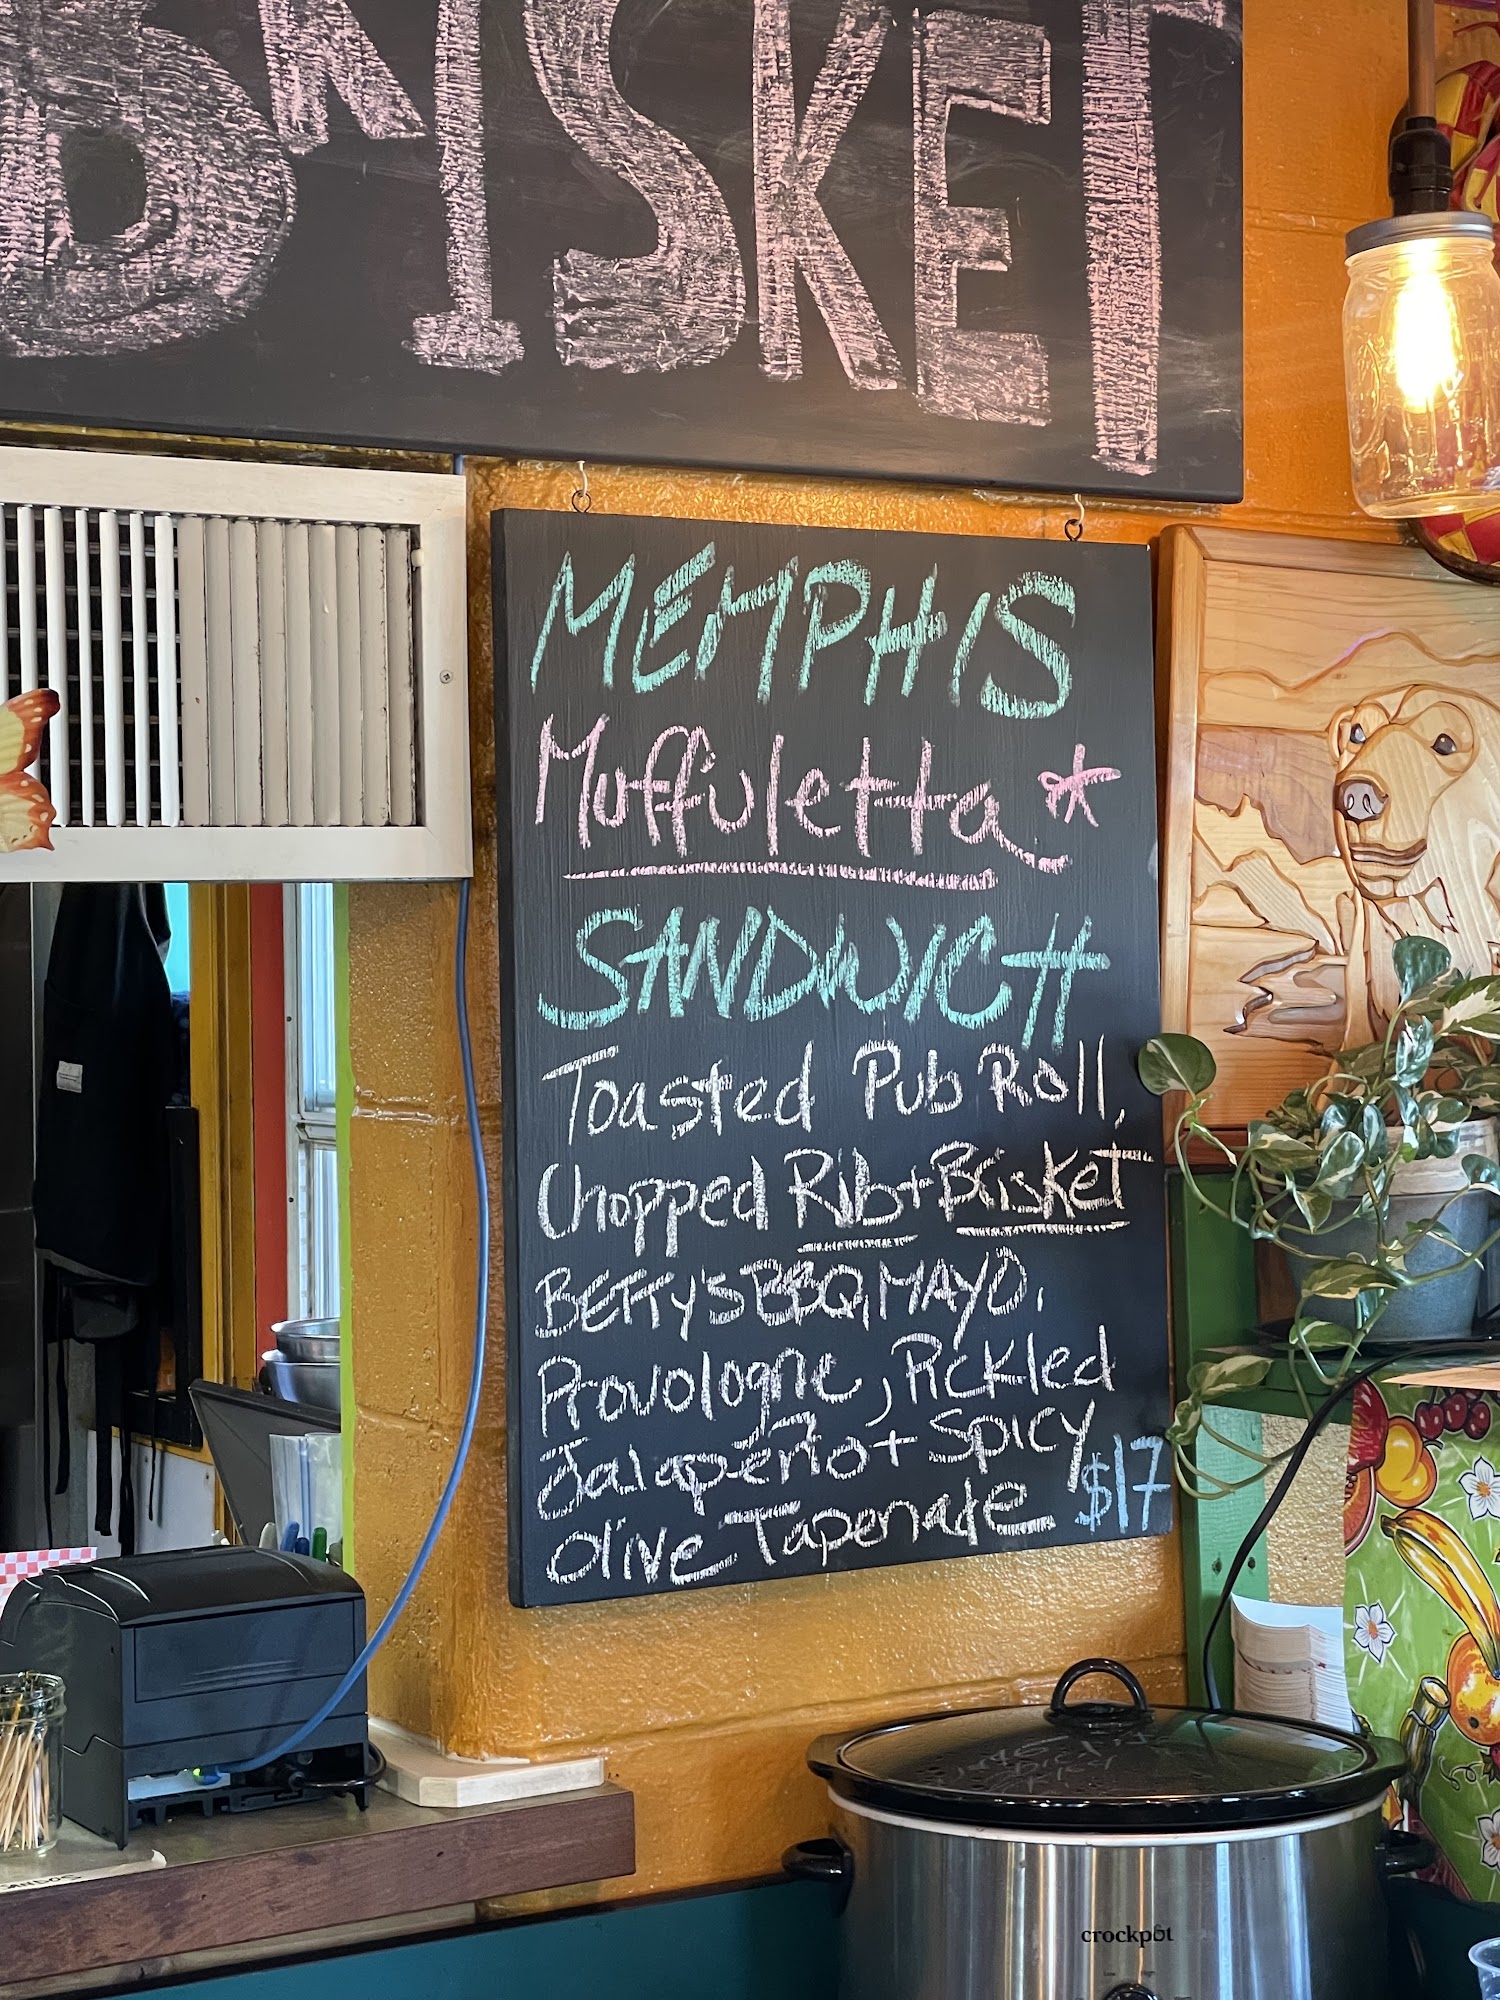 BRISKET
MEMPHIS
Muffuletta *
SANDWICH
Toasted Pub Roll,
Chopped Rib + Brisket
BETTY'S BBQ, MAYO,
Provologne, Pickled
Jalapeño + Spicy
Olive Tapenade $17
crockpot